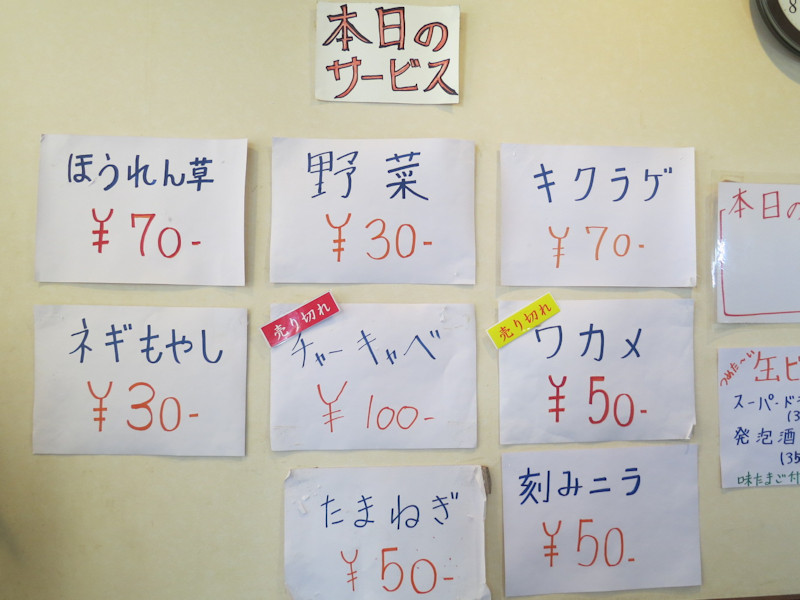 本日の
サービス
ほうれん草
¥70-
野菜
¥30-
キクラゲ
¥70-
ネギもやし
¥30-
売り切れ
チャーキャベ
¥100-
売り切れ
ワカメ
¥50-
たまねぎ
¥50-
刻みニラ
¥50-
本日の
つめた〜い
缶ビ
スーパードラ
(3
発泡酒
(35
味たまご付